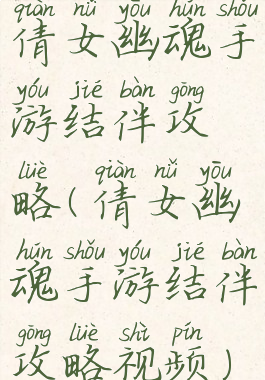 qiàn nǚ yōu hún shǒu
倩女幽魂手
yóu jié bàn gōng
游结伴攻
lüè qiàn nǚ yōu
略(倩女幽
hún shǒu yóu jié bàn
魂手游结伴
gōng lüè shì pín
攻略视频)